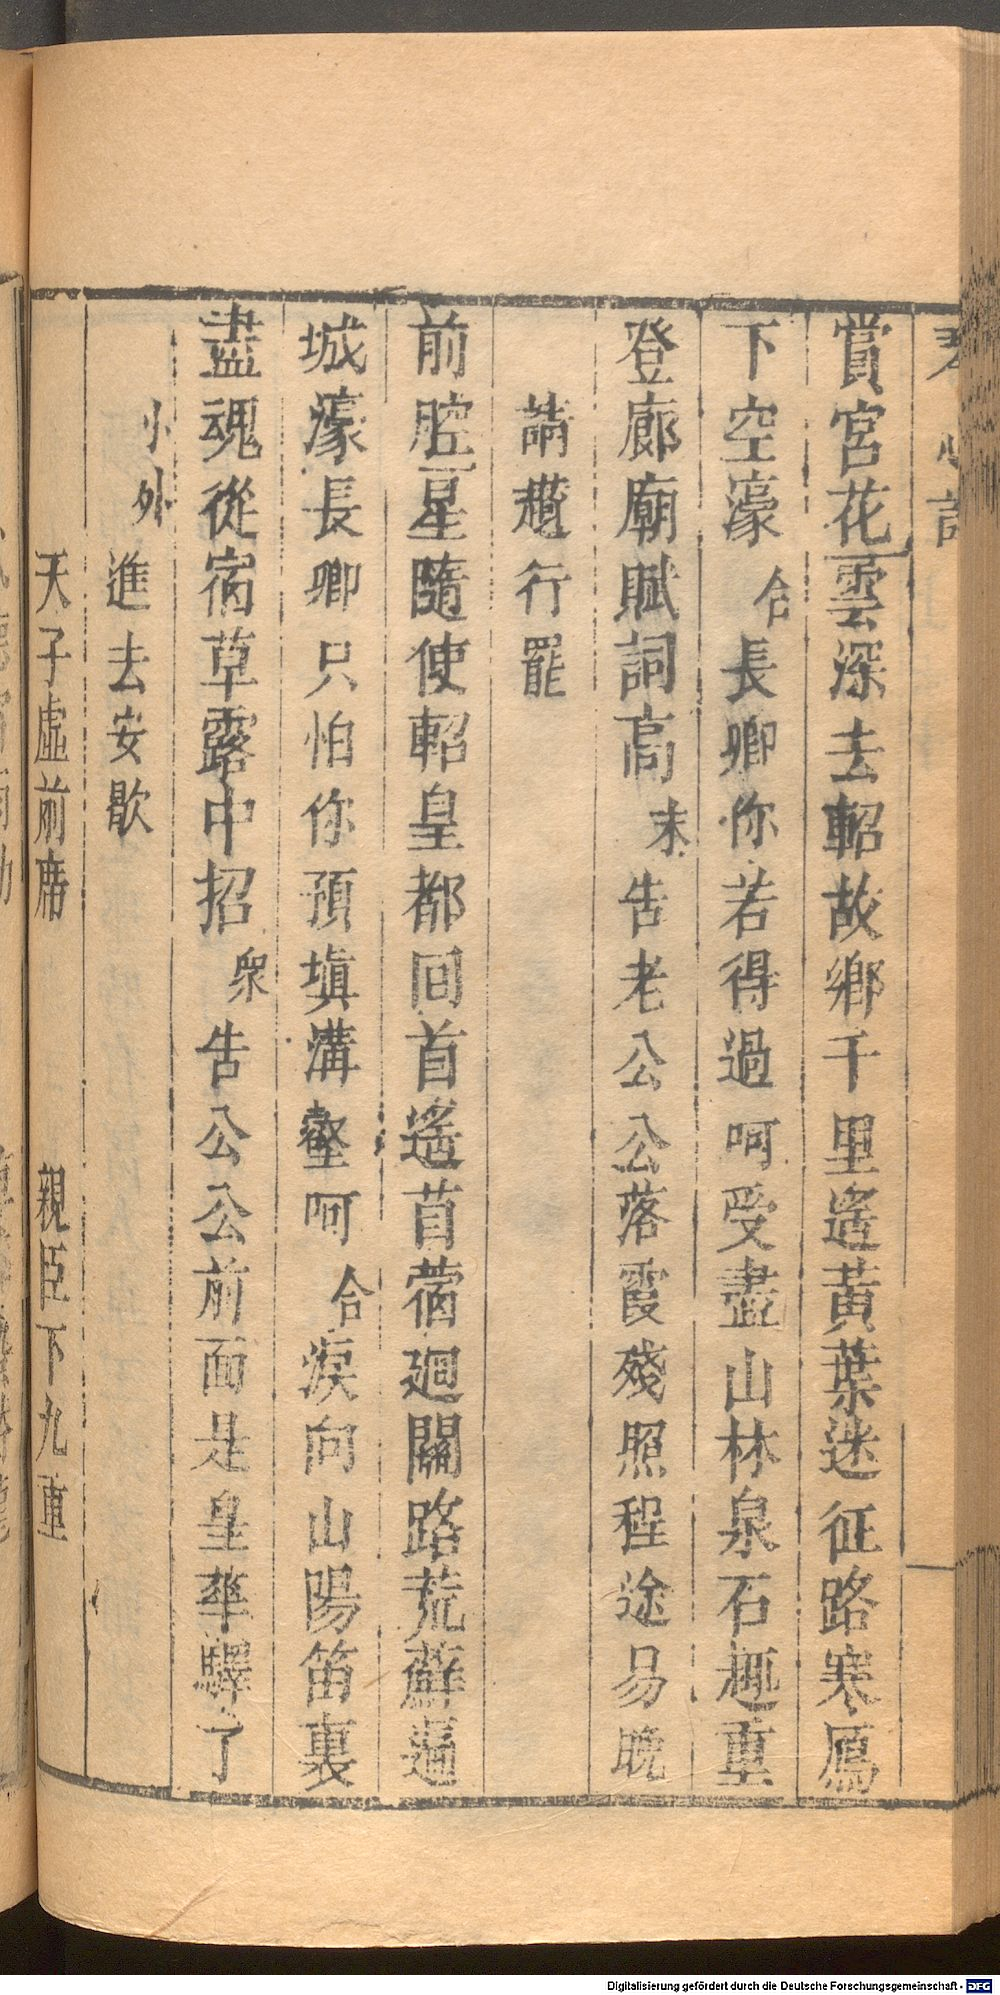 琴心記
賞宮花雲深去軺故鄉千里遙黃葉迷征路寒鴈
下空濠合長卿你若得過呵受盡山林泉石趣重
登廊廟賦詞高末告老公公落霞殘照程途易晚
請趲行罷
前腔星隨使軺皇都回首遙苜蓿廻關路荒蘚遍
城濠長卿只怕你預塡溝壑呵合淚向山陽笛裏
盡魂從宿草露中招衆告公公前面是皇華驛了
小外進去安歇
天子虛前席 親臣下九重
Digitalisierung gefördert durch die Deutsche Forschungsgemeinschaft - DFG